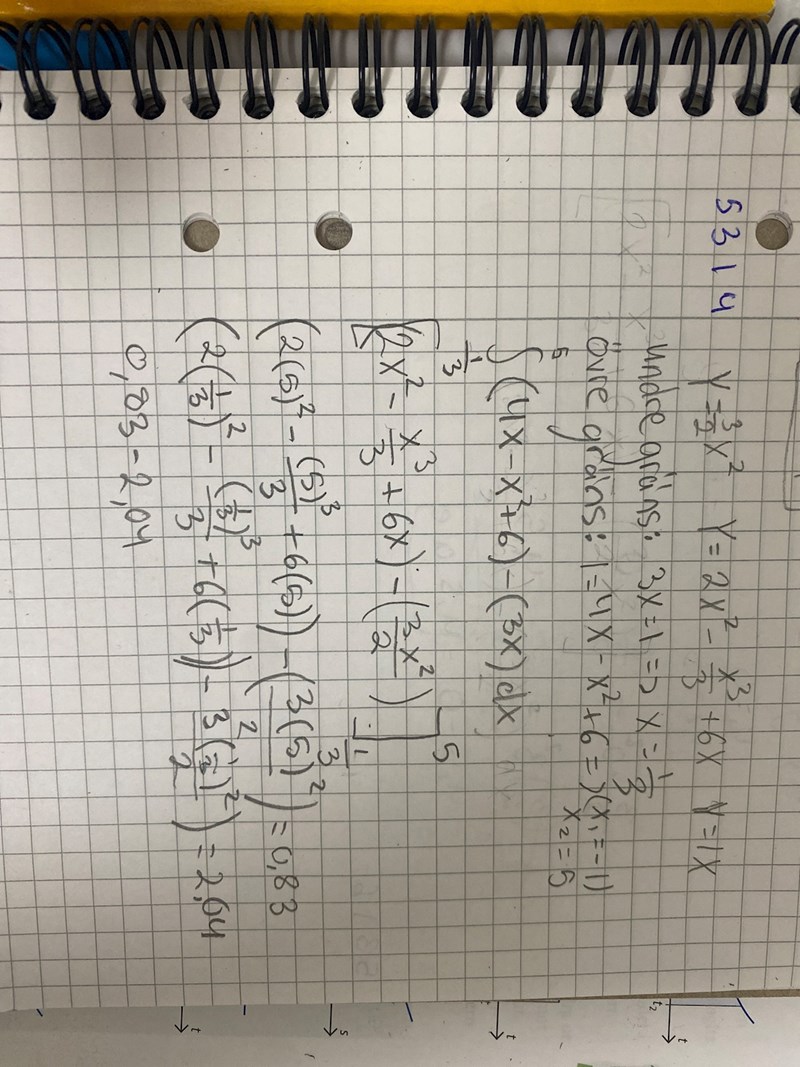 5314 y = 3/2 x² y = 2x² - x³/3 + 6x y = 1x
undre gräns: 3x = 1 => x = 1/3
övre gräns: 1 = 4x - x² + 6 => (x₁ = -1) x₂ = 5
∫₁/₃⁵ (4x - x² + 6) - (3x) dx
[(2x² - x³/3 + 6x) - (3x²/2)]₁/₃⁵
(2(5)² - (5)³/3 + 6(5)) - (3(5)²/2) = 0,83
(2(1/3)² - (1/3)³/3 + 6(1/3)) - 3(1/3)²/2) = 2,04
0,83 - 2,04
t₂
t
t
s
t